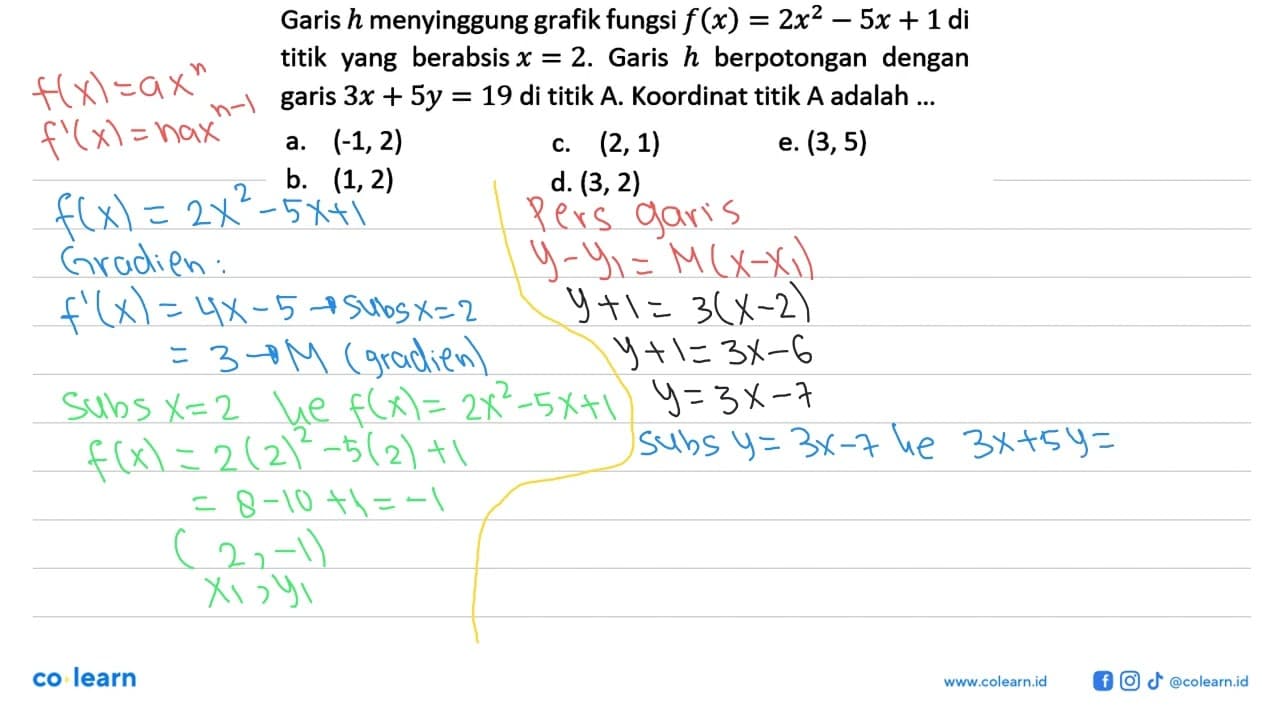 Garis h menyinggung grafik fungsi f(x) = 2x² − 5x + 1 di
titik yang berabsis x = 2. Garis h berpotongan dengan
garis 3x + 5y = 19 di titik A. Koordinat titik A adalah ...
a. (-1, 2) c. (2, 1) e. (3, 5)
b. (1, 2) d. (3, 2)
f(x)=ax^n
f'(x)=nax^n-1
f(x) = 2x²-5x+1
Gradien:
f'(x) = 4x-5 → subs x=2
= 3 → M (gradien)
Subs x=2 ke f(x)= 2x²-5x+1
f(x) = 2(2)²-5(2)+1
= 8-10+1=-1
(2,-1)
x₁,y₁
Pers garis
y-y₁= M(x-x₁)
y+1= 3(x-2)
y+1=3x-6
y=3x-7
subs y=3x-7 ke 3x+5y=
co learn
www.colearn.id @colearn.id